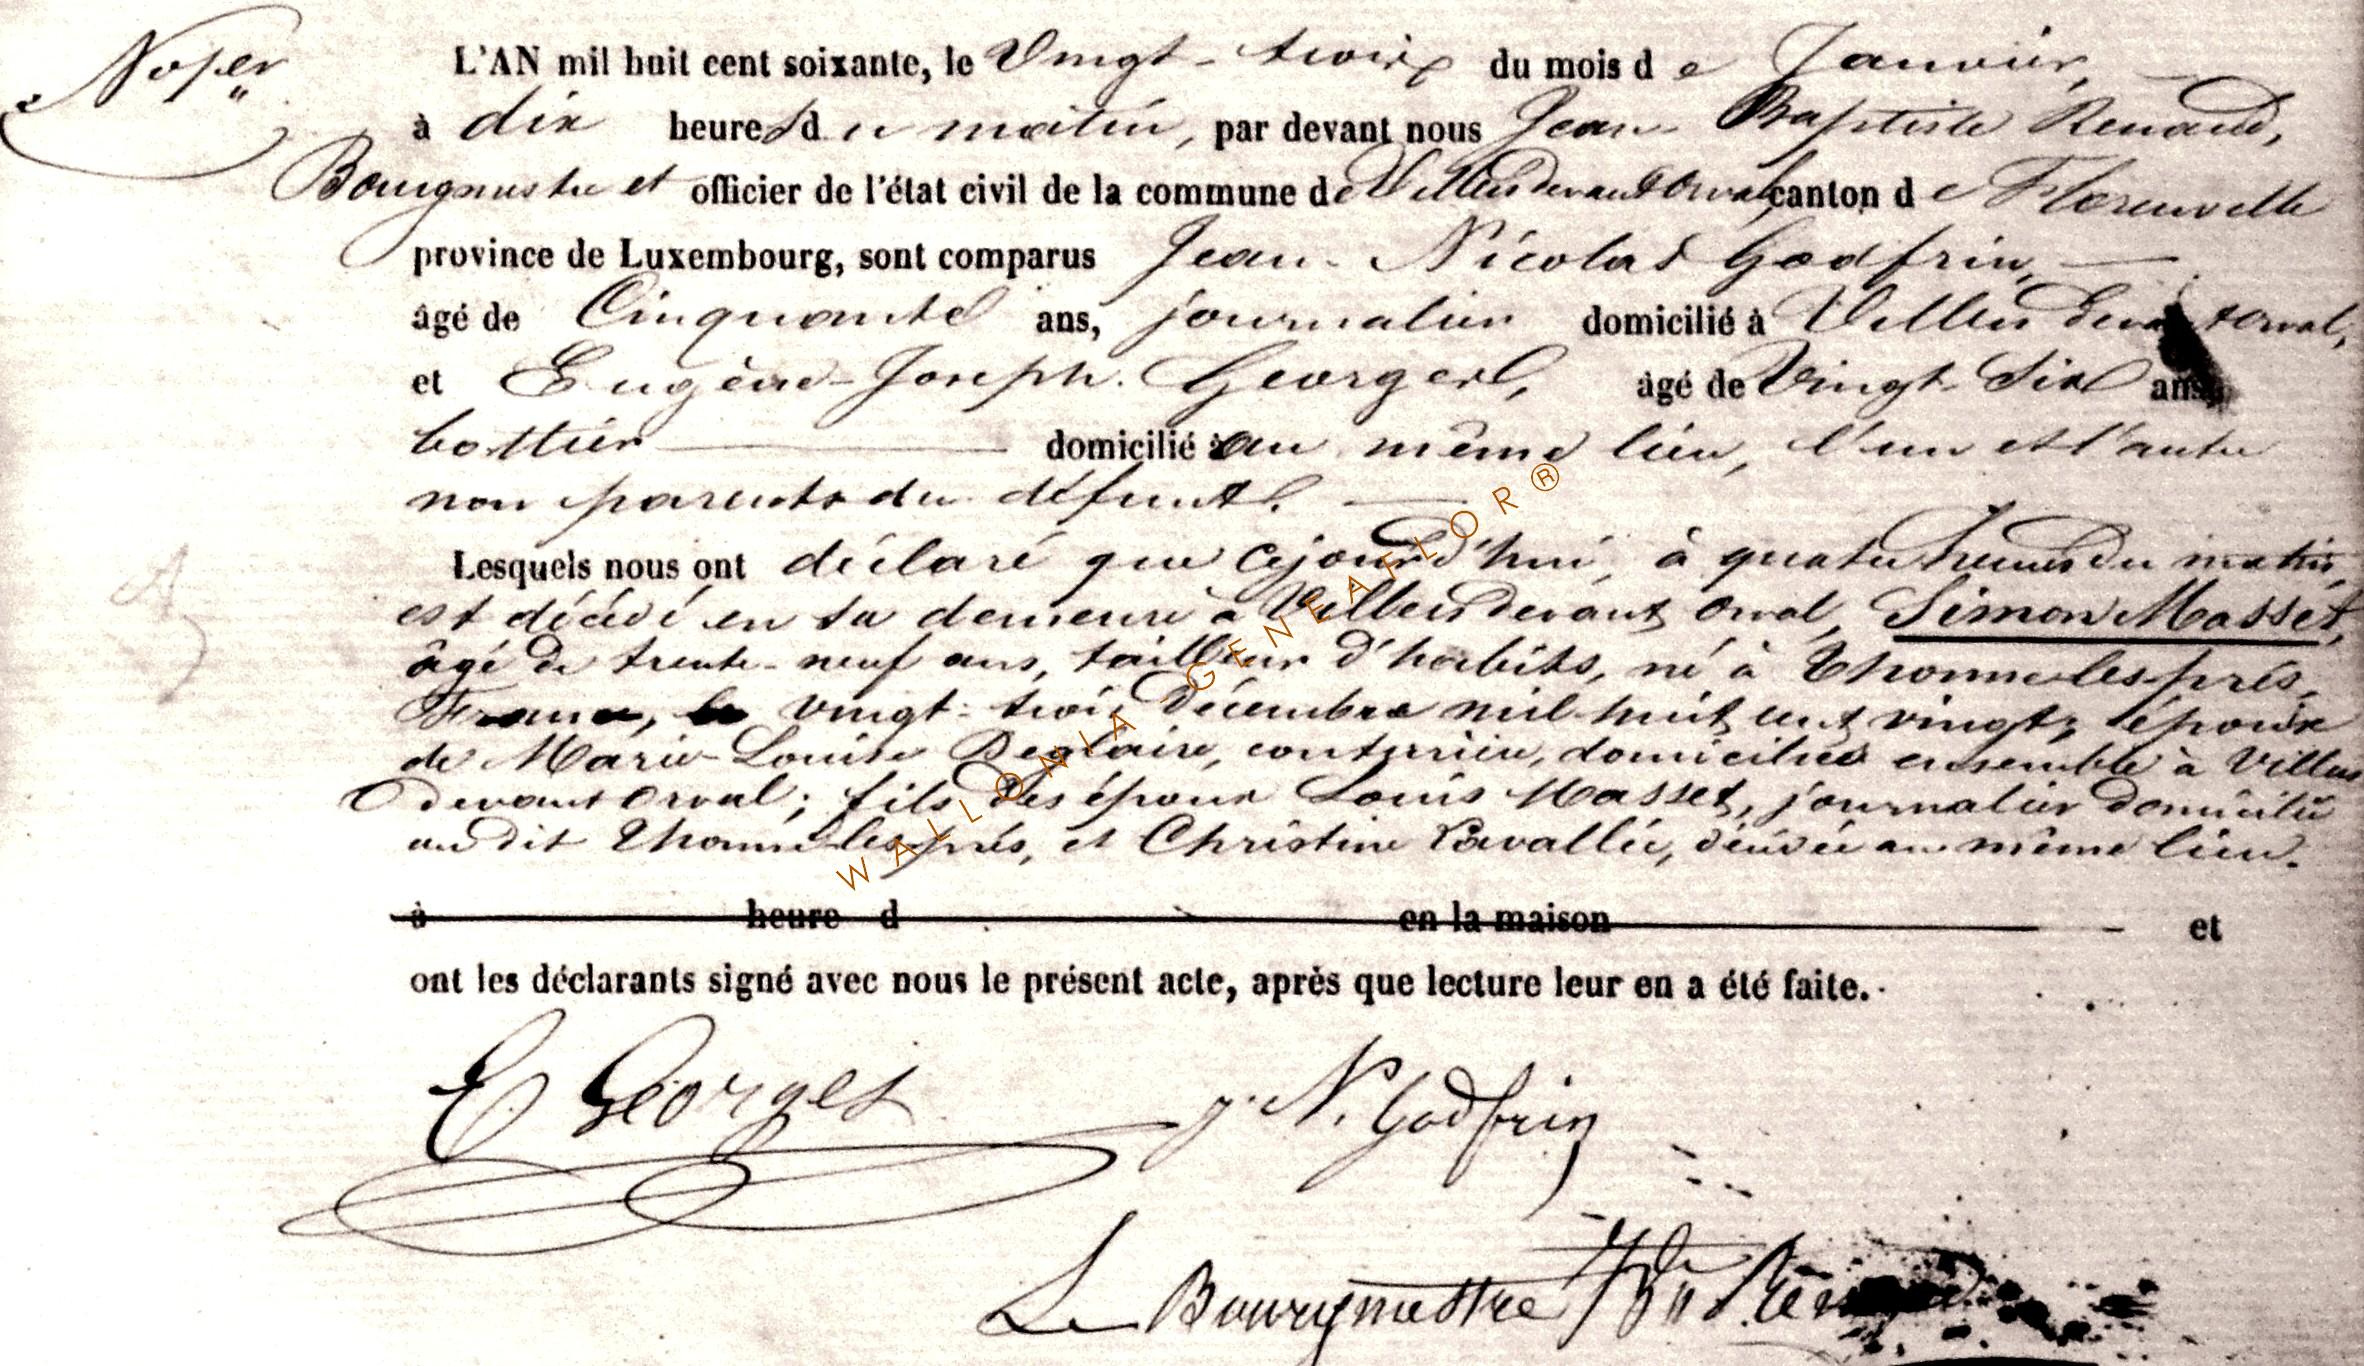 No 1er
L'AN mil huit cent soixante, le Vingt-trois du mois d e Janvier,
à dix heures d u matin, par devant nous Jean Baptiste Renaud,
Bourgmestre et officier de l'état civil de la commune de Villers devant Orval, canton d e Florenville
province de Luxembourg, sont comparus Jean-Nicolas Godfrin,
âgé de Cinquante ans, journalier domicilié à Villers devant Orval,
et Eugène-Joseph Georges, âgé de Vingt-Six ans,
bottier domicilié à au même lieu, l'un et l'autre
non parents du défunt.
Lesquels nous ont déclaré que cejourd'hui, à quatre heures du matin,
est décédé en sa demeure à Villers devant Orval, Simon Masset,
âgé de trente-neuf ans, tailleur d'habits, né à Thonne les prés,
France, le vingt-trois Décembre mil huit cent vingt, époux
de Marie-Louise Deglaire, couturière, domiciliés ensemble à Villers
devant Orval; fils des époux Louis Masset, journalier domicilié
au dit Thonne les prés, et Christine Lavallée, décédée au même lieu.
à heure d en la maison et
ont les déclarants signé avec nous le présent acte, après que lecture leur en a été faite.
E Georges J. N. Godfrin
Le Bourgmestre J Bte Renaud
WALLONIA GENEAFLOR®